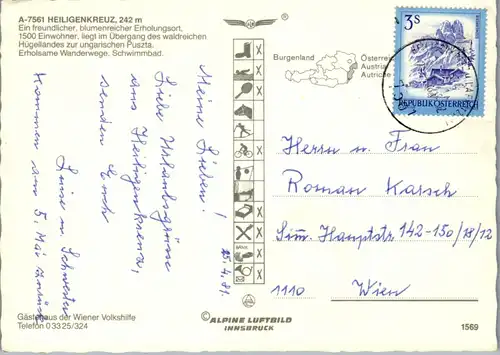 A-7561 HEILIGENKREUZ, 242 m
Ein freundlicher, blumenreicher Erholungsort,
1500 Einwohner, liegt im Übergang des waldreichen
Hügellandes zur ungarischen Puszta.
Erholsame Wanderwege. Schwimmbad.
Burgenland
Österreich
Austria
Autriche
3s
REPUBLIK ÖSTERREICH
Meine Lieben!
Liebe Urlaubsgrüße
aus Heiligenkreuz,
senden Euch
Luise u Schwester
Kommen am 5. Mai zurück
15.4.81.
Herrn u. Frau
Roman Karsch
Sim. Hauptstr 142-150/18/12
1110 Wien
Gästehaus der Wiener Volkshilfe
Telefon 0 33 25/324
© ALPINE LUFTBILD
INNSBRUCK
1569